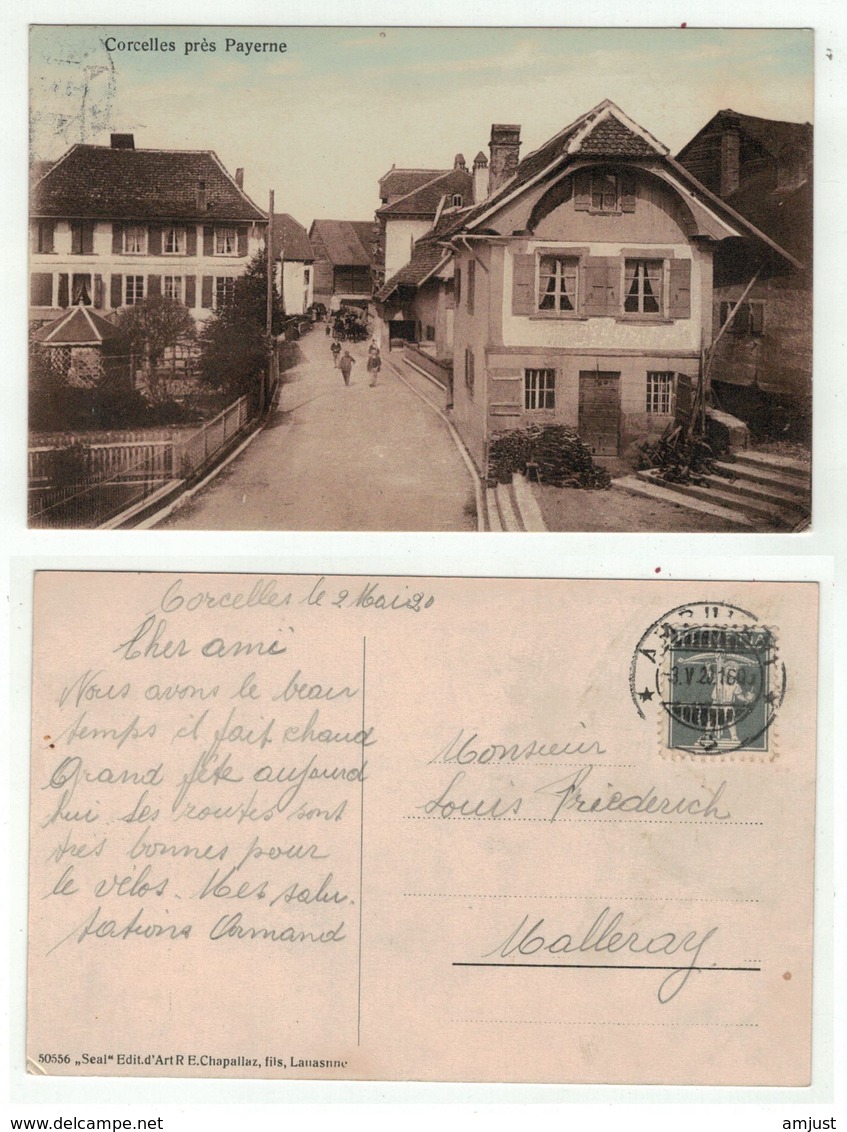 Corcelles près Payerne
Corcelles le 2 Mai 20
Cher ami
Nous avons le beau
temps il fait chaud
Grand fête aujourd
hui Les routes sont
très bonnes pour
le vélos. Mes salu-
tations Armand
Monsieur
Louis Friederich
Malleray.
3.V.20.16
50556 „Seal" Edit.d'Art R E.Chapallaz, fils, Lauasnne
delcampe.net
amjust